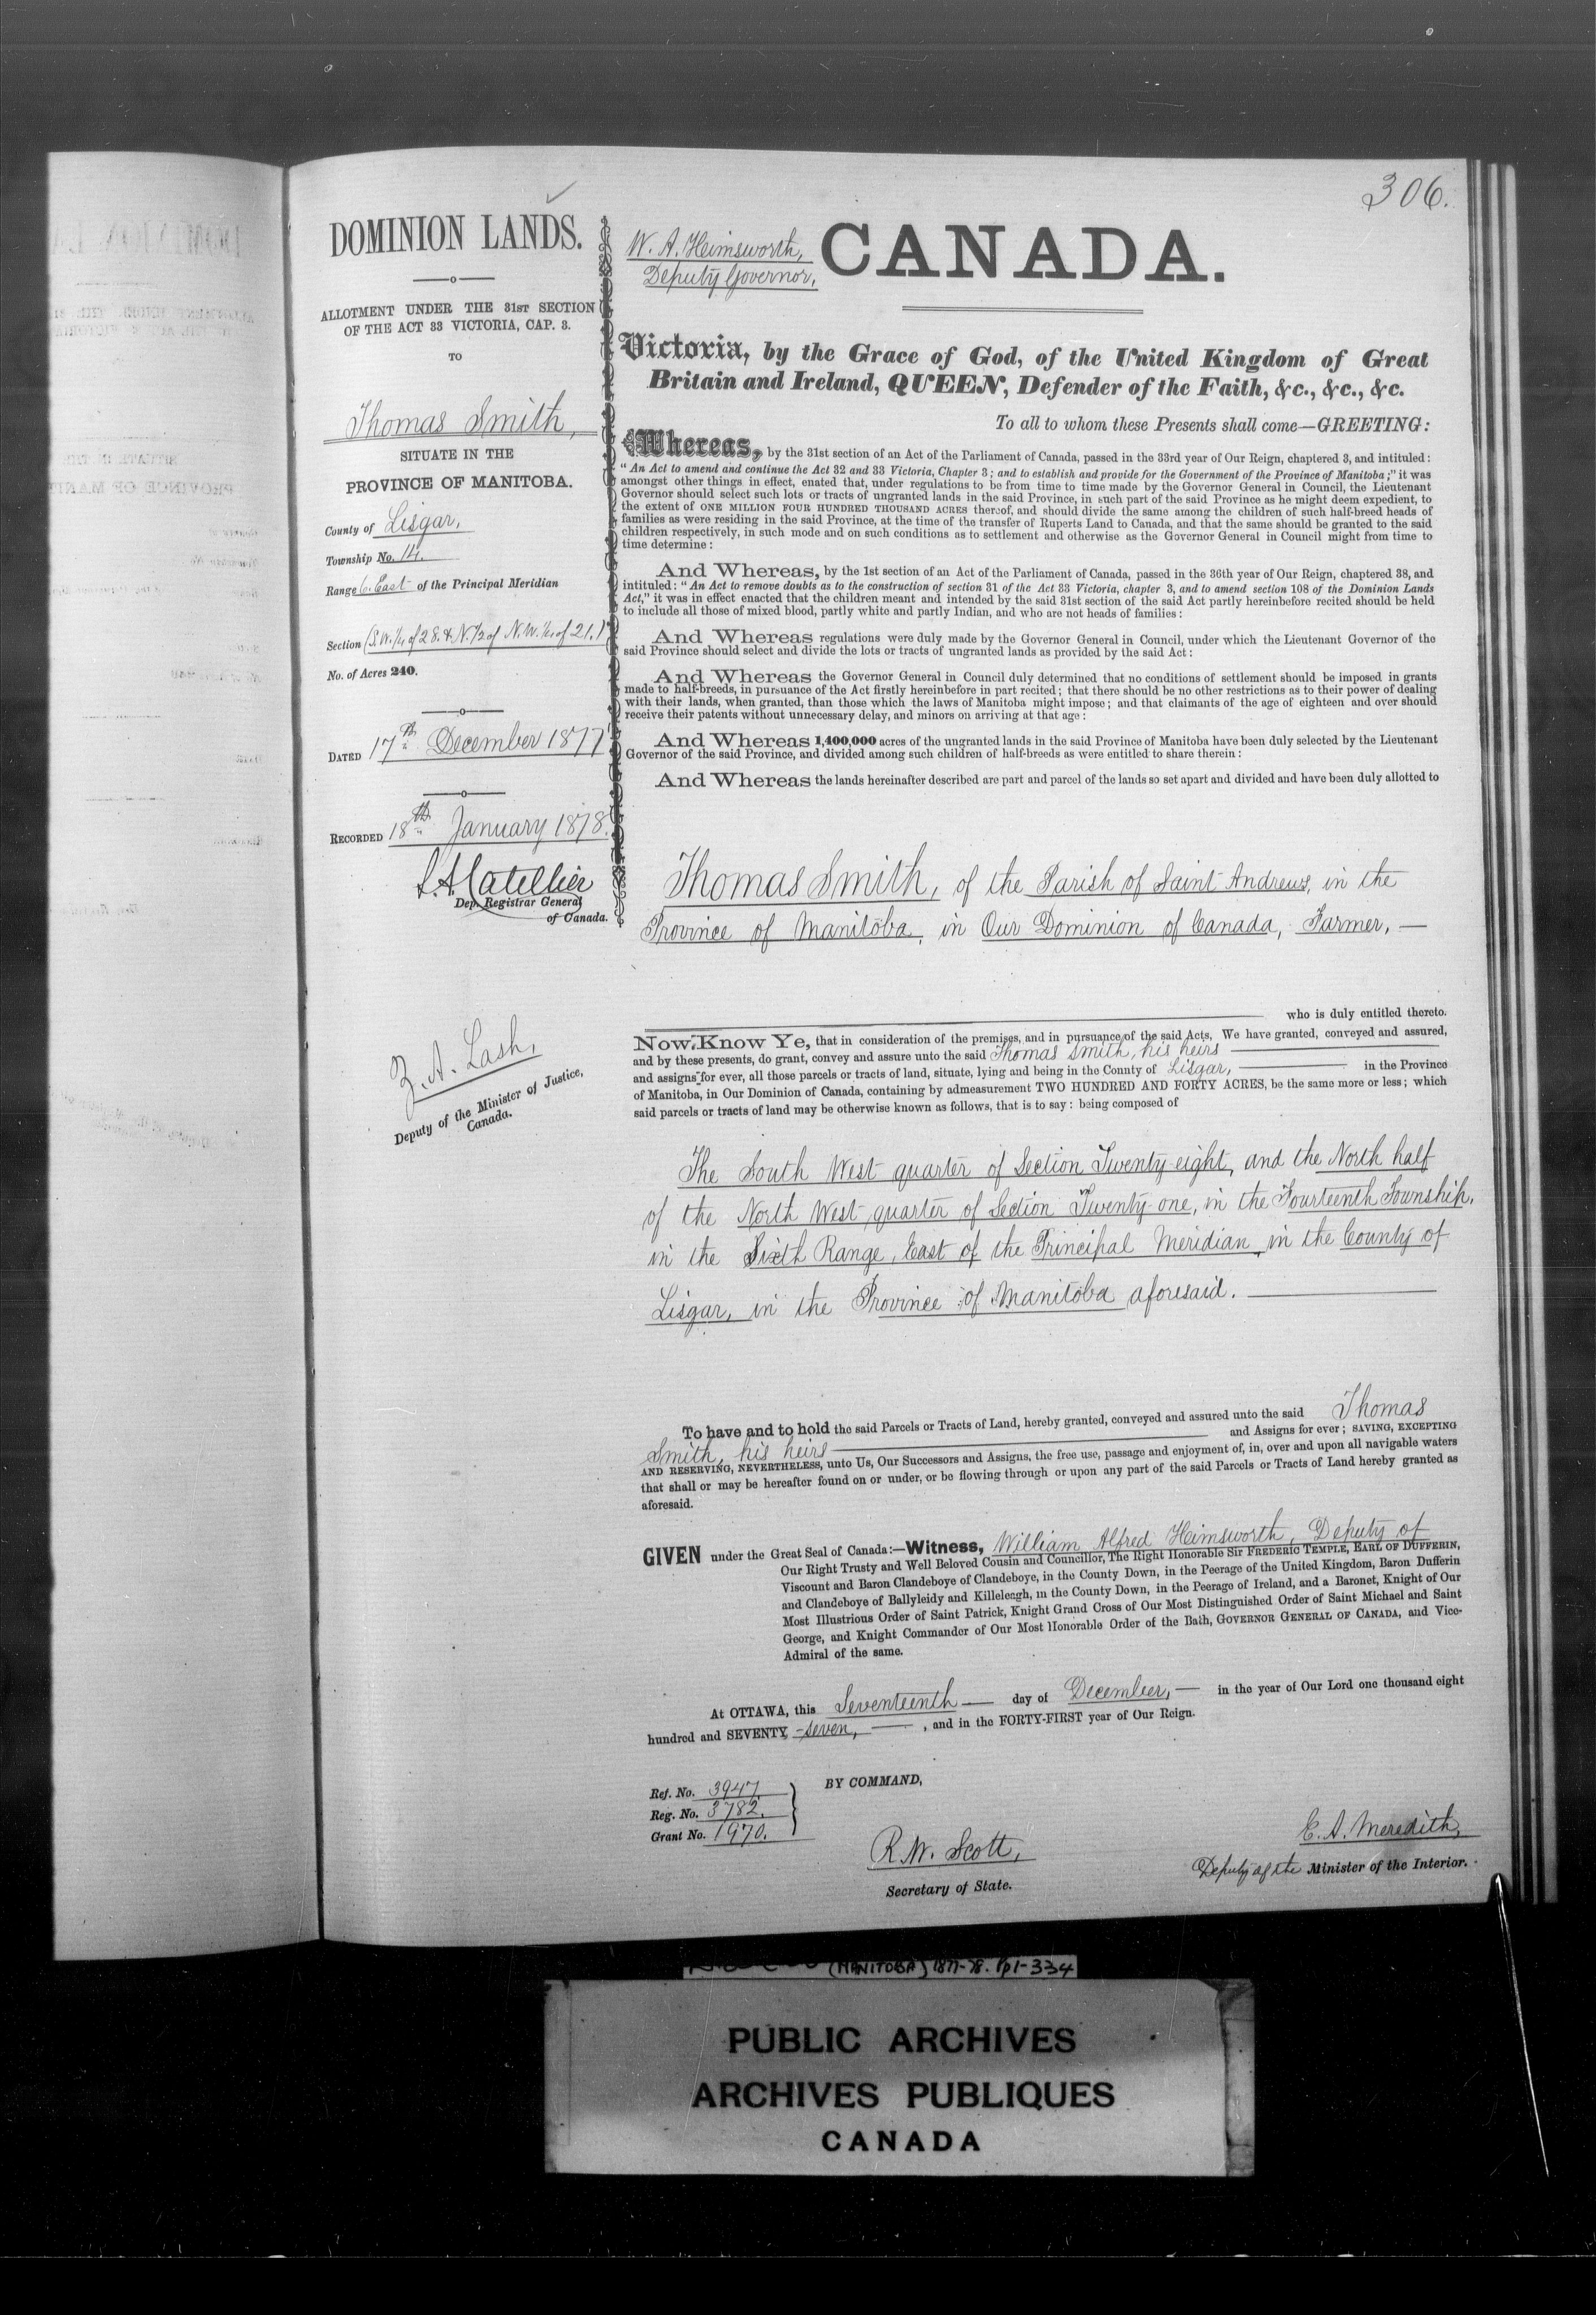 306.
DOMINION LANDS.
ALLOTMENT UNDER THE 31ST SECTION
OF THE ACT 33 VICTORIA, CAP. 3.
TO
Thomas Smith,
SITUATE IN THE
PROVINCE OF MANITOBA.
County of Lisgar,
Township No. 14.
Range 6. East of the Principal Meridian
Section (S.W. 1/4 of 28. & N. 1/2 of N.W. 1/4 of 21.)
No. of Acres 240.
DATED 17th December 1877
RECORDED 18th January 1878.
Dep. Registrar General
of Canada.
Z. A. Lash,
Deputy of the Minister of Justice,
Canada.
W. A. Heimsworth,
Deputy Governor,
CANADA.
Victoria, by the Grace of God, of the United Kingdom of Great
Britain and Ireland, QUEEN, Defender of the Faith, &c., &c., &c.
To all to whom these Presents shall come—GREETING:
Whereas, by the 31st section of an Act of the Parliament of Canada, passed in the 33rd year of Our Reign, chaptered 3, and intituled:
"An Act to amend and continue the Act 32 and 33 Victoria, Chapter 3; and to establish and provide for the Government of the Province of Manitoba;" it was
amongst other things in effect, enated that, under regulations to be from time to time made by the Governor General in Council, the Lieutenant
Governor should select such lots or tracts of ungranted lands in the said Province, in such part of the said Province as he might deem expedient, to
the extent of ONE MILLION FOUR HUNDRED THOUSAND ACRES thereof, and should divide the same among the children of such half-breed heads of
families as were residing in the said Province, at the time of the transfer of Ruperts Land to Canada, and that the same should be granted to the said
children respectively, in such mode and on such conditions as to settlement and otherwise as the Governor General in Council might from time to
time determine:
And Whereas, by the 1st section of an Act of the Parliament of Canada, passed in the 36th year of Our Reign, chaptered 38, and
intituled: "An Act to remove doubts as to the construction of section 31 of the Act 33 Victoria, chapter 3, and to amend section 108 of the Dominion Lands
Act," it was in effect enacted that the children meant and intended by the said 31st section of the said Act partly hereinbefore recited should be held
to include all those of mixed blood, partly white and partly Indian, and who are not heads of families:
And Whereas regulations were duly made by the Governor General in Council, under which the Lieutenant Governor of the
said Province should select and divide the lots or tracts of ungranted lands as provided by the said Act:
And Whereas the Governor General in Council duly determined that no conditions of settlement should be imposed in grants
made to half-breeds, in pursuance of the Act firstly hereinbefore in part recited; that there should be no other restrictions as to their power of dealing
with their lands, when granted, than those which the laws of Manitoba might impose; and that claimants of the age of eighteen and over should
receive their patents without unnecessary delay, and minors on arriving at that age:
And Whereas 1,400,000 acres of the ungranted lands in the said Province of Manitoba have been duly selected by the Lieutenant
Governor of the said Province, and divided among such children of half-breeds as were entitled to share therein:
And Whereas the lands hereinafter described are part and parcel of the lands so set apart and divided and have been duly allotted to
Thomas Smith, of the Parish of Saint Andrews, in the
Province of Manitoba, in Our Dominion of Canada, Farmer, —
who is duly entitled thereto.
Now, Know Ye, that in consideration of the premises, and in pursuance of the said Acts, We have granted, conveyed and assured,
and by these presents, do grant, convey and assure unto the said Thomas Smith, his heirs
and assigns for ever, all those parcels or tracts of land, situate, lying and being in the County of Lisgar, in the Province
of Manitoba, in Our Dominion of Canada, containing by admeasurement TWO HUNDRED AND FORTY ACRES, be the same more or less; which
said parcels or tracts of land may be otherwise known as follows, that is to say: being composed of
The South West quarter of Section Twenty-eight, and the North half
of the North West quarter of Section Twenty-one, in the Fourteenth Township,
in the Sixth Range, East of the Principal Meridian, in the County of
Lisgar, in the Province of Manitoba aforesaid.
To have and to hold the said Parcels or Tracts of Land, hereby granted, conveyed and assured unto the said Thomas
Smith, his heirs and Assigns for ever; SAVING, EXCEPTING
AND RESERVING, NEVERTHELESS, unto Us, Our Successors and Assigns, the free use, passage and enjoyment of, in, over and upon all navigable waters
that shall or may be hereafter found on or under, or be flowing through or upon any part of the said Parcels or Tracts of Land hereby granted as
aforesaid.
GIVEN under the Great Seal of Canada:—Witness, William Alfred Heimsworth, Deputy of
Our Right Trusty and Well Beloved Cousin and Councillor, The Right Honorable Sir FREDERIC TEMPLE, EARL OF DUFFERIN,
Viscount and Baron Clandeboye of Clandeboye, in the County Down, in the Peerage of the United Kingdom, Baron Dufferin
and Clandeboye of Ballyleidy and Killeleagh, in the County Down, in the Peerage of Ireland, and a Baronet, Knight of Our
Most Illustrious Order of Saint Patrick, Knight Grand Cross of Our Most Distinguished Order of Saint Michael and Saint
George, and Knight Commander of Our Most Honorable Order of the Bath, GOVERNOR GENERAL OF CANADA, and Vice-
Admiral of the same.
At OTTAWA, this Seventeenth — day of December, — in the year of Our Lord one thousand eight
hundred and SEVENTY-seven, — , and in the FORTY-FIRST year of Our Reign.
Ref. No. 3947.
Reg. No. 3782.
Grant No. 1970.
BY COMMAND,
R. W. Scott,
Secretary of State.
E. A. Meredith,
Deputy of the Minister of the Interior.
(MANITOBA) 1877-78. pp1-334
PUBLIC ARCHIVES
ARCHIVES PUBLIQUES
CANADA